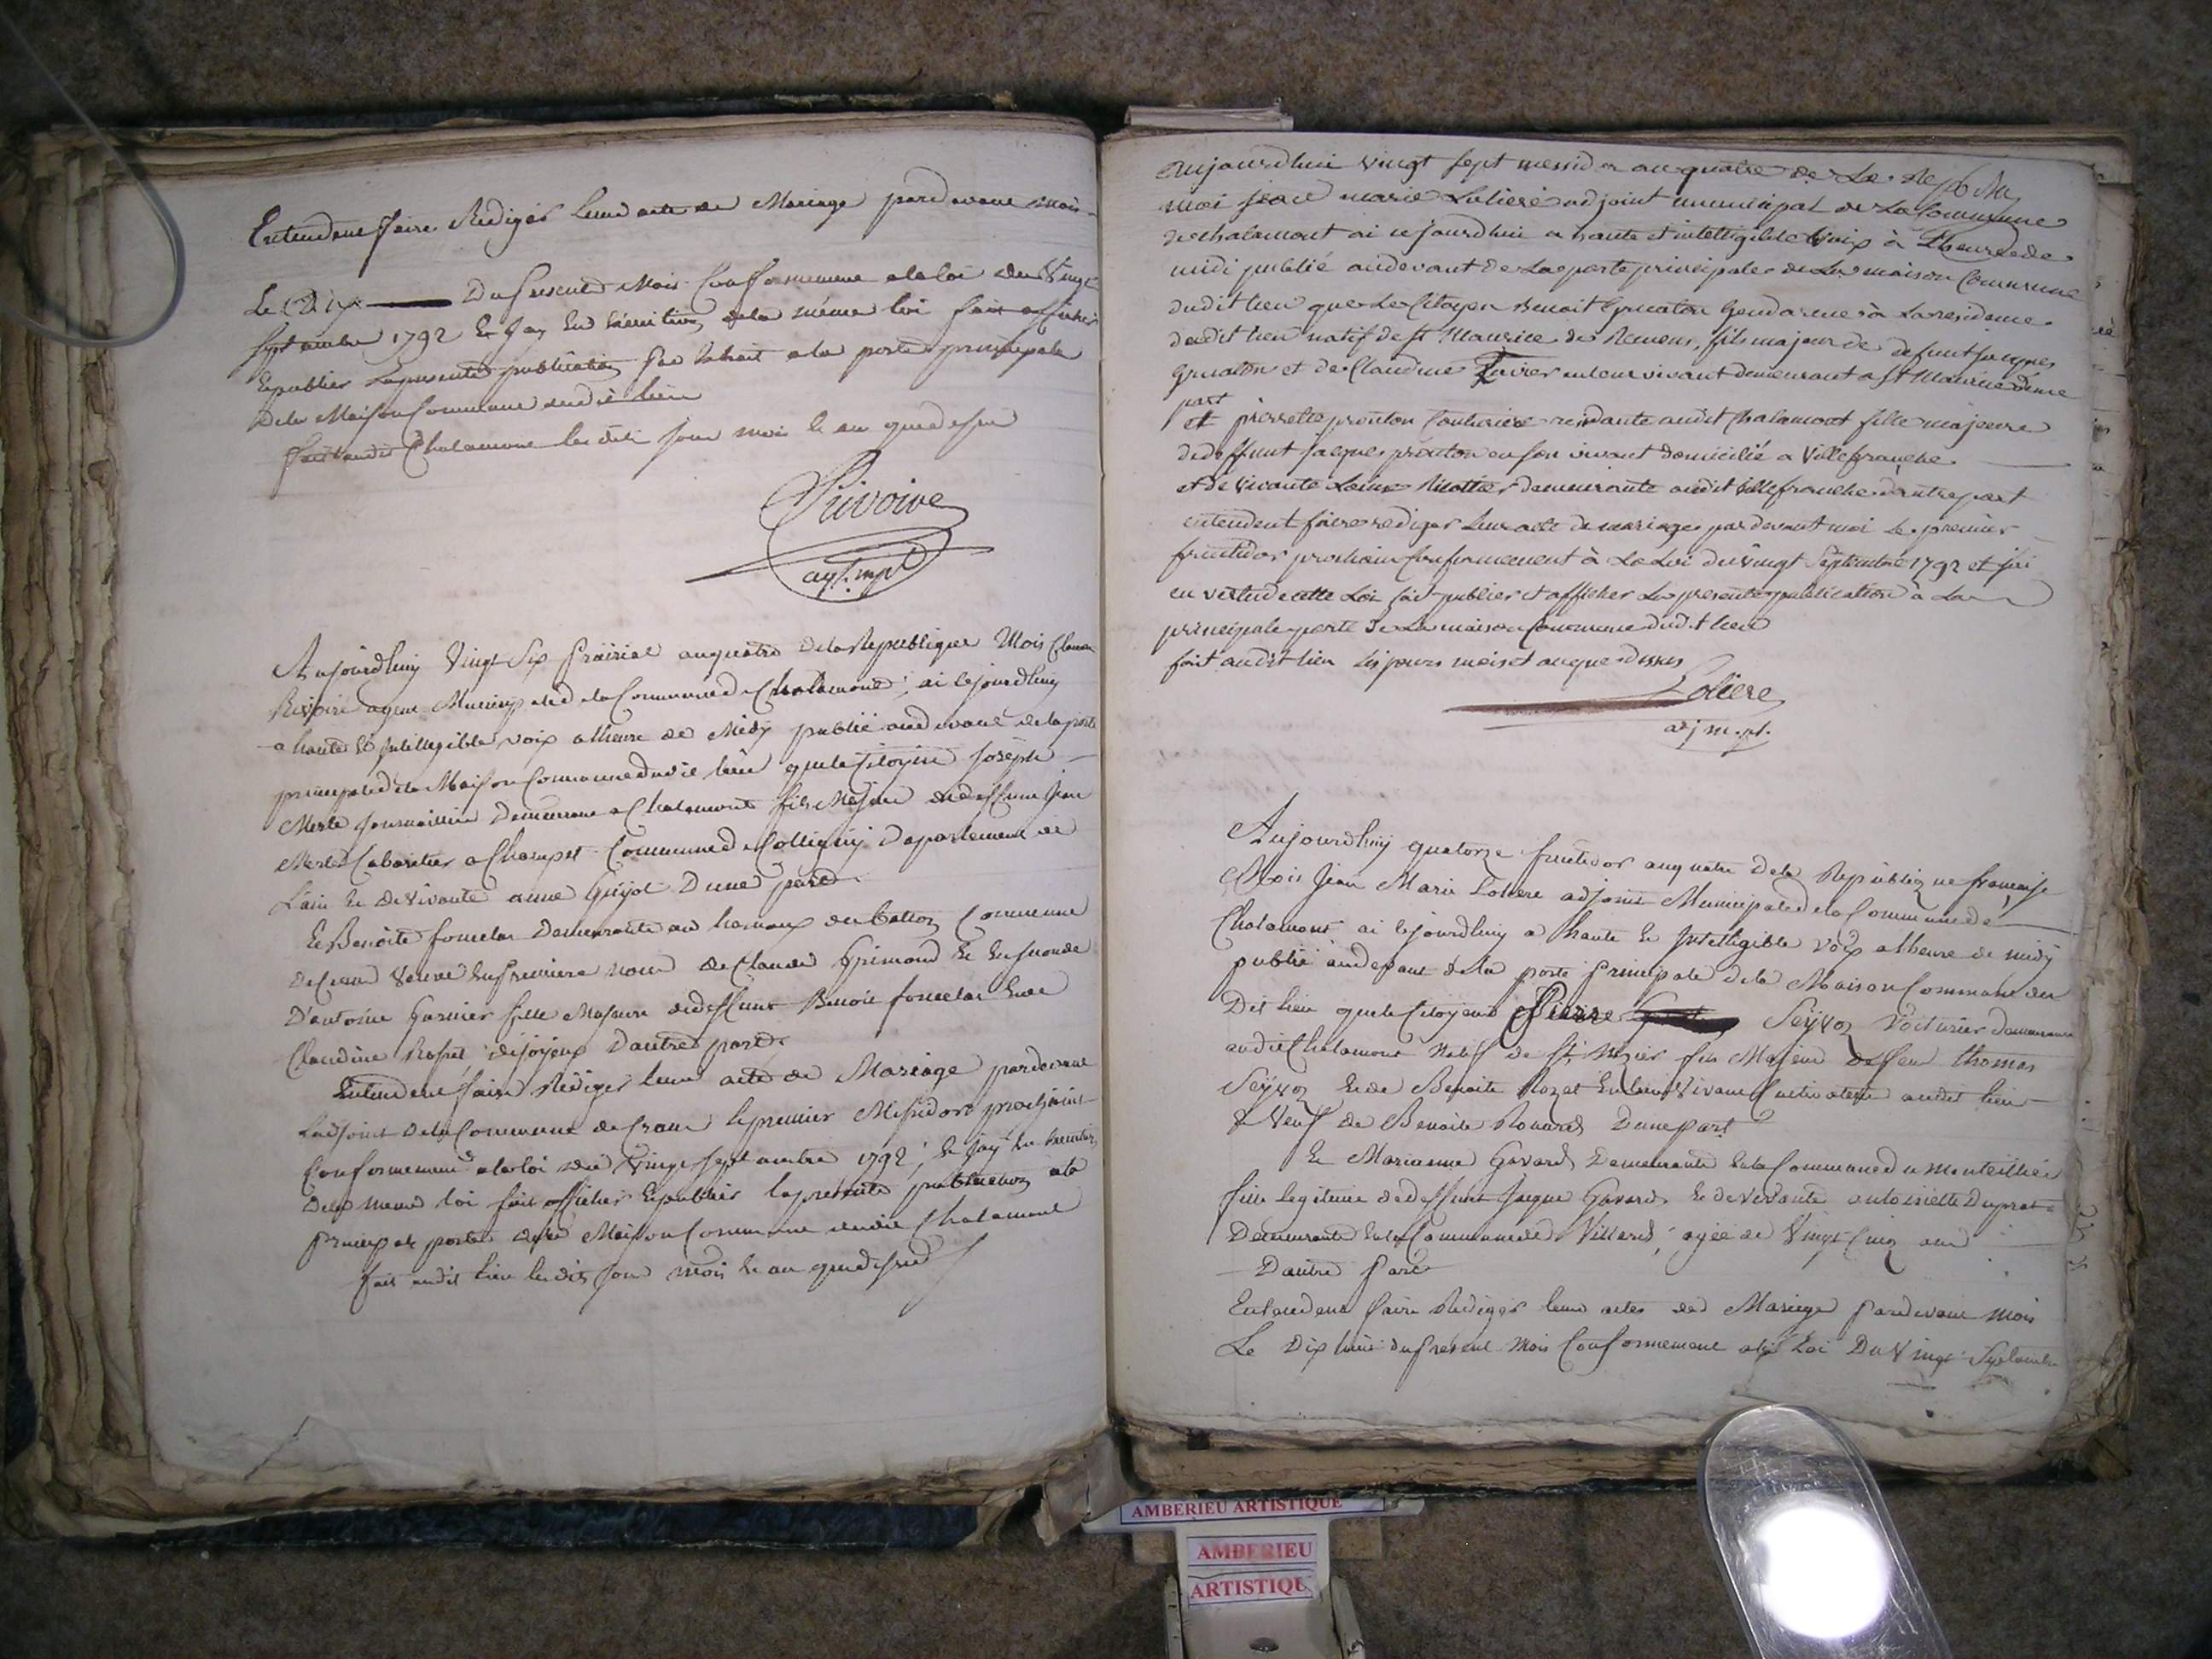 Entendent faire Rediger leurd acte de Mariage pardevant moi
Le Dix Du present Mois Conformement a la loi du Vingt
Septambre 1792 Et Jay En Execution de la même loi fait afficher
Epublier la presente publication par Extrait a la porte principale
de la Maison Commune dudit lieu
fait audit Chalamont les dits jour mois & an que dessus
Rivoire
agt. mpl
Aujourdhuy Vingt Six Prairial anquatre dela Republique Mois
Rivoire agent Municipal de la Commune de Chalamont, ai cejourdhuy
a haute & Intelligible voix a lheure de Midy publié audevant de la porte
principale de la Maison Commune dudit lieu que le Citoyen Joseph
Merle Journaillier Demeurant a Chalamont fils Majeur de deffunt Jean
Merle Cabaretier a Commune de Colligny Departement de
Lain & de vivante anne Guyot D'une part
Et Benoite fonclar Demeurante au hameaux du Commune
de Cran Veuve En Premiere nouce de Claude Grimond & En seconde
D'antoine Garnier fille Majeure de deffunt Benoit fonclar &
Claudine de joyeux D'autre part
Entendent faire Rédiger leurd acte de Mariage pardevant
Ladjoint dela Commune de Cran le premier Messidore prochaint
Conformement a la loi du Vingt Septambre 1792, & Jay En
De la meme loi fait afficher Epublier la presente publication a la
Principale porte de la Maison Commune dudit Chalamont
fait audit lieu les dits jour mois & an que dessus
aujourdhui vingt sept messidor an quatre de La Rep
moi jean marie Loliere adjoint municipal de La Commune
de chalamont ai cejourdhui a haute et intelligible voix à Lheure de
midi publié audevant de La porte principale de La maison Commune
dudit lieu que Le Citoyen Benoit Gendarme à La residence
dudit lieu natif de st Maurice de Remens, fils majeur de defunt jacques
et de Claudine en leur vivant demeurant a st Maurice d'une
part
et pierrette prouton Couturiere residante audit Chalamont fille majeure
de deffunt jacques prouton en son vivant domicilié a Villefranche
et de vivante demeurante audit Villefranche d'autre part
entendent faire rediger leur acte de mariage pardevant moi Le premier
fructidor prochain Conformement à La Loi du vingt Septembre 1792 et j'ai
en vertu de cette Loi fait publier et afficher La presente publication à La
principale porte de La maison Commune dudit lieu
fait audit lieu les jours mois et an que dessus
Loliere
adj m.pl.
Aujourdhuy quatorze fructidor anquatre dela Republiq ne française
Mois Jean Marie Loliere adjoint Municipal de la Commune de
Chalamont ai cejourdhuy a haute & Intelligible voix a lheure de midy
publié audevant dela porte Principale dela Maison Commune du
Dit lieu que le Citoyen Pierre Seÿvoz Voiturier Demeurant
audit Chalamont Natif de St. Nizier fils Majeur de feu thomas
Seÿvoz & de Benoite Rozat En leur Vivant Cultivateur audit lieu
& Veuf de Benoite Dune part
Et Marianne Gavard Demeurante En la Commune de
fille legitime de deffunt Jaque Gavard & de vivante antoinette Duprat
Demeurante En la Commune de Villard, agée de Vingt Cinq and
D'autre Part
Entendent faire Rediger leurd actes de Mariage Pardevant Mois
Le Dix huit du present Mois Conformement a la Loi Du Vingt Septambre
AMBERIEU ARTISTIQUE
AMBERIEU
ARTISTIQU